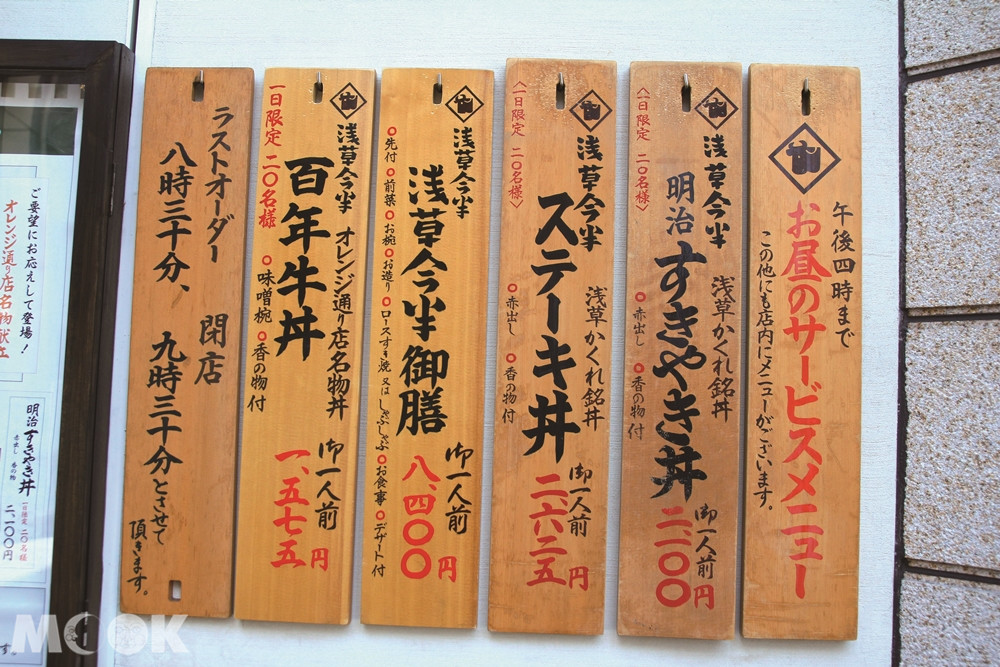 午後四時まで
お昼のサービスメニュー
この他にも店内にメニューがございます。
浅草今半
浅草かくれ銘丼
明治すきやき丼
御一人前
二、一〇〇円
〈一日限定 二〇名様〉
赤出し
香の物付
浅草今半
浅草かくれ銘丼
ステーキ丼
御一人前
二、六二五円
〈一日限定 二〇名様〉
赤出し
香の物付
浅草今半
浅草今半御膳
御一人前
八、四〇〇円
先付 前菜 お椀 お造り ロースすき焼 又は しゃぶしゃぶ お食事 デザート付
浅草今半
オレンジ通り店名物丼
百年牛丼
御一人前
一、五七五円
一日限定 二〇名様
味噌椀
香の物付
ラストオーダー 閉店
八時三十分、 九時三十分とさせて
頂きます。
ご要望にお応えして登場!
オレンジ通り店名物献立
明治すきやき丼
赤出し 香の物
一日限定 二〇名様
二、一〇〇円
す。
MOOK